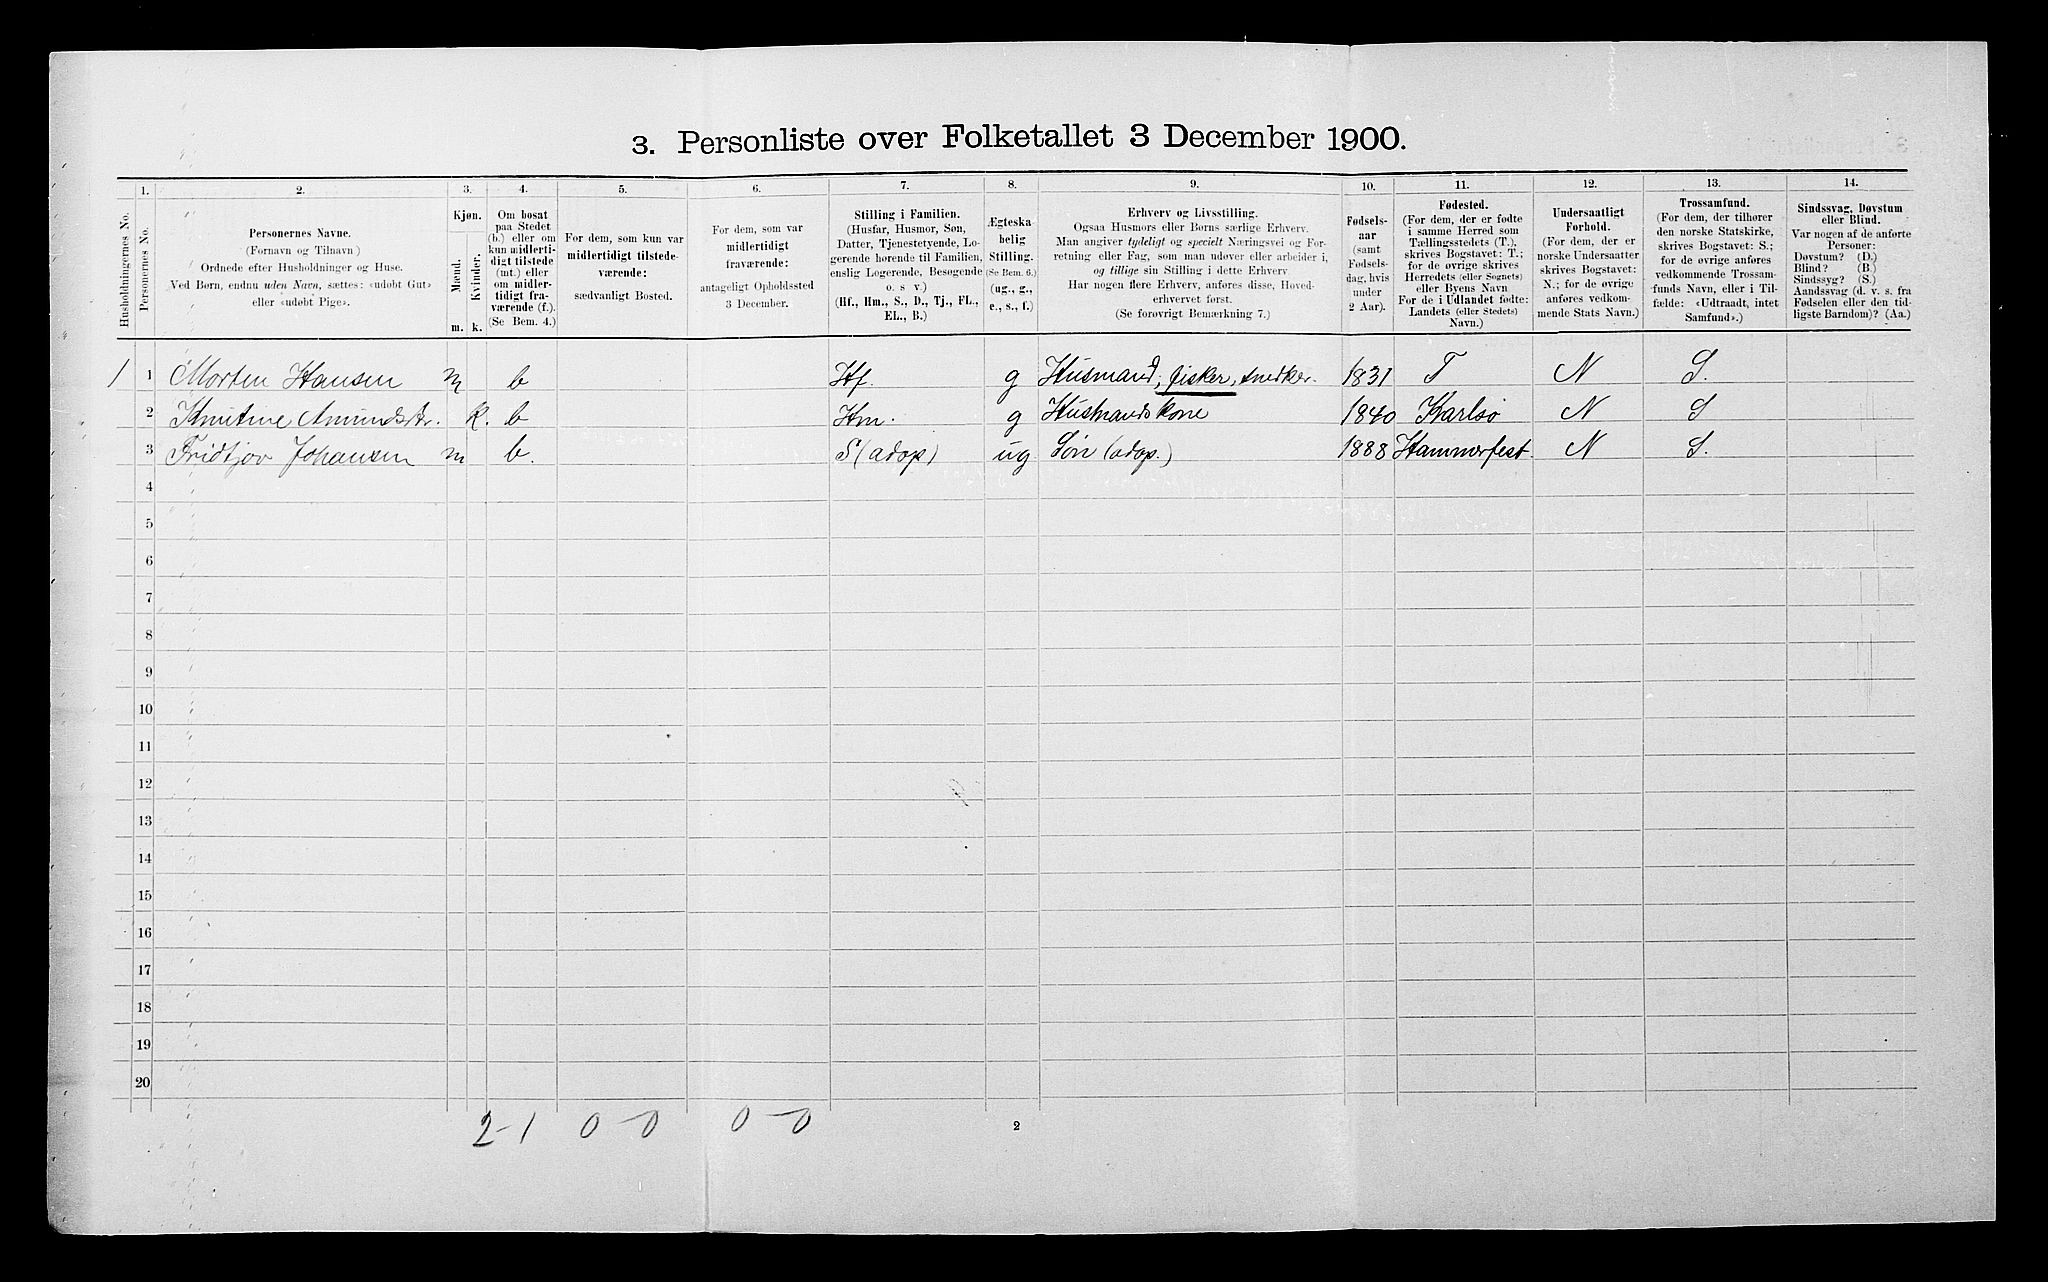 3. Personliste over Folketallet 3 December 1900.
1. 2. 3. 4. 5. 6. 7. 8. 9. 10. 11. 12. 13. 14.
Husholdningernes No.
Personernes No.
Personernes Navne.
(Fornavn og Tilnavn)
Ordnede efter Husholdninger og Huse.
Ved Børn, endnu uden Navn, sættes: «udøbt Gut»
eller «udøbt Pige».
Kjøn.
Mænd.
Kvinder.
m. k.
Om bosat
paa Stedet
(b.) eller om
kun midlerti-
digt tilstede
(mt.) eller
om midler-
tidigt fra-
værende (f.).
(Se Bem. 4.)
For dem, som kun var
midlertidigt tilstede-
værende:
sædvanligt Bosted.
For dem, som var
midlertidigt
fraværende:
antageligt Opholdssted
3 December.
Stilling i Familien.
(Husfar, Husmor, Søn,
Datter, Tjenestetyende, Lo-
gerende hørende til Familien,
enslig Logerende, Besøgende
o. s. v.)
(Hf., Hm., S., D., Tj., FL.,
EL., B.)
Ægteska-
belig
Stilling.
(Se Bem. 6.)
(ug., g.,
e., s., f.)
Erhverv og Livsstilling.
Ogsaa Husmors eller Børns særlige Erhverv.
Man angiver tydeligt og specielt Næringsvei og For-
retning eller Fag, som man udøver eller arbeider i,
og tillige sin Stilling i dette Erhverv
Har nogen flere Erhverv, anføres disse, Hoved-
erhvervet først.
(Se forøvrigt Bemærkning 7.)
Fødsels-
aar
(samt
Fødsels-
dag, hvis
under
2 Aar).
Fødested.
(For dem, der er fødte
i samme Herred som
Tællingsstedets (T.),
skrives Bogstavet: T.;
for de øvrige skrives
Herredets (eller Sognets)
eller Byens Navn
For de i Udlandet fødte:
Landets (eller Stedets)
Navn.)
Undersaatligt
Forhold.
(For dem, der er
norske Undersaatter
skrives Bogstavet:
N.; for de øvrige
anføres vedkom-
mende Stats Navn.)
Trossamfund.
(For dem, der tilhører
den norske Statskirke,
skrives Bogstavet: S.;
for de øvrige anføres
vedkommende Trossam-
funds Navn, eller i Til-
fælde: «Udtraadt, intet
Samfund».)
Sindssvag, Døvstum
eller Blind.
Var nogen af de anførte
Personer:
Døvstum? (D.)
Blind? (B.)
Sindssyg? (S.)
Aandssvag (d. v. s. fra
Fødselen eller den tid-
ligste Barndom)? (Aa.)
1 1 Morten Hansen m b Hf. g Husmand, fisker, snedker. 1831 T N S.
2 Knutine Amundsdtr. k. b Hm. g Husmandskone 1840 Karlsö N S
3 Fridtjov Johansen m b. S (adop) ug Sön (adop.) 1888 Hammerfest. N S.
4
5
6
7
8
9
10
11
12
13
14
15
16
17
18
19
20
2-1 0-0 0-0 2